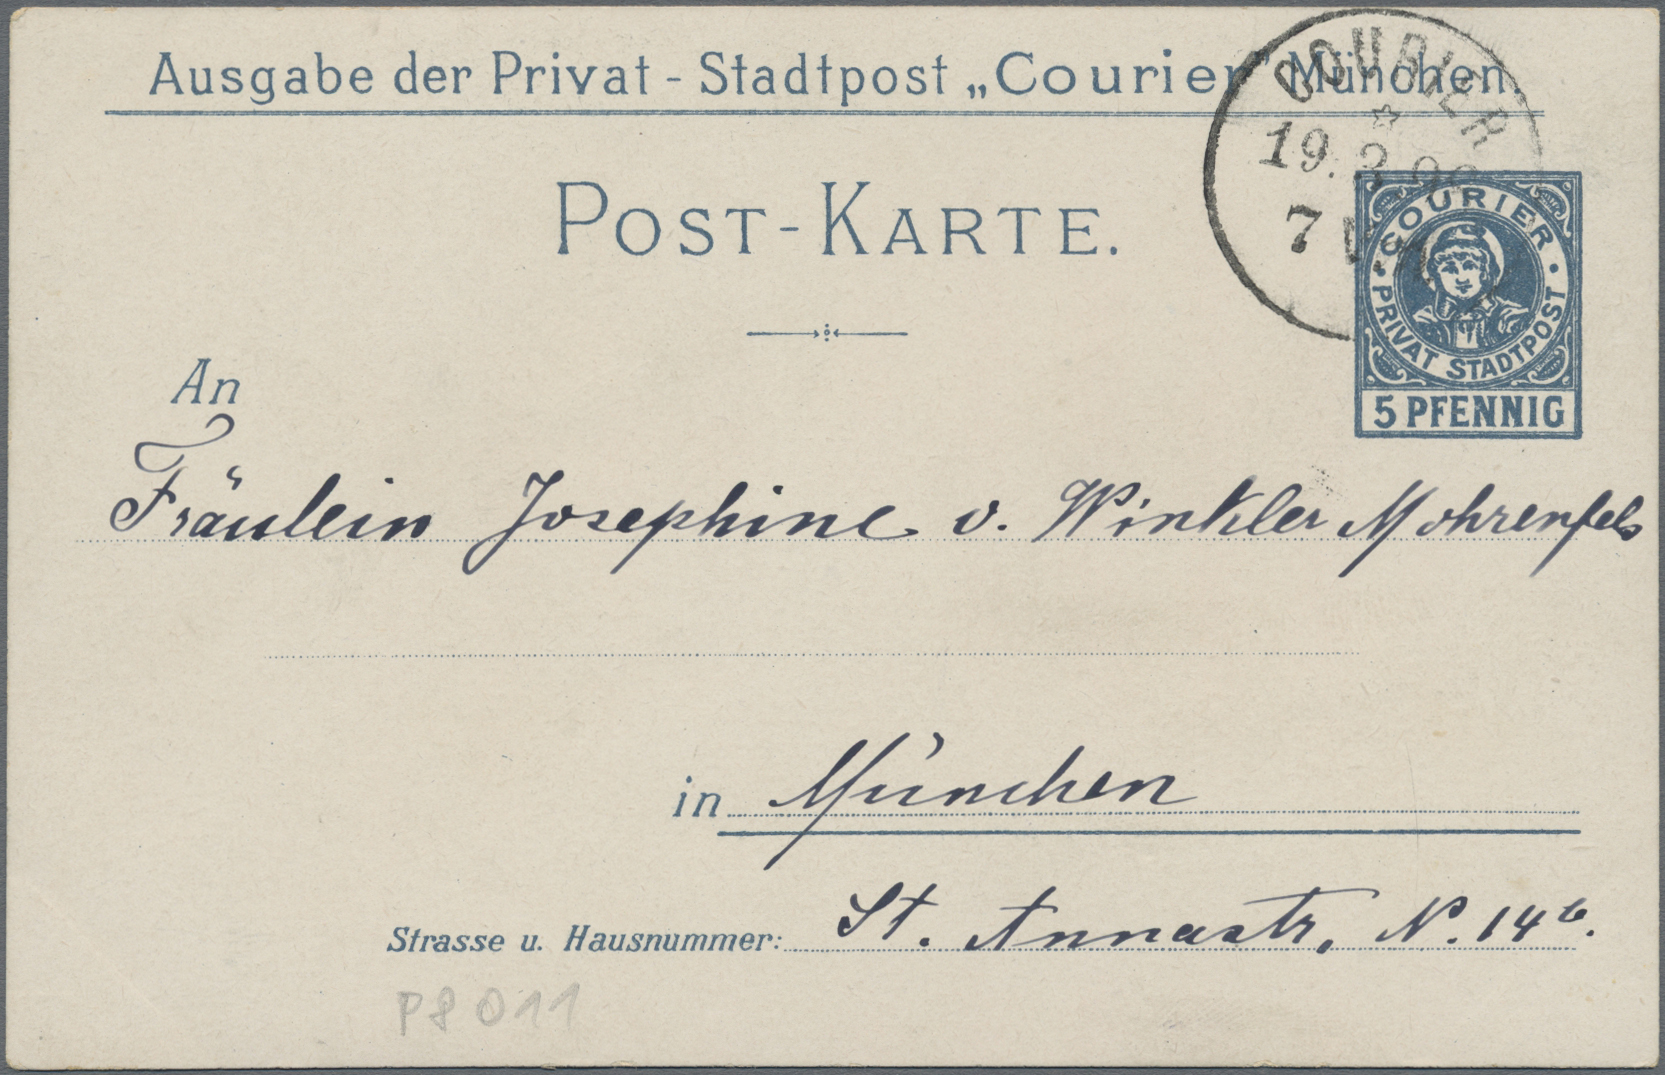 Ausgabe der Privat-Stadtpost „Courier" München.
COURIER
19. 3.
7
POST-KARTE.
COURIER
PRIVAT STADTPOST
5 PFENNIG
An
Fräulein Josephine v. Winkler Mohrenfels
in München
Strasse u. Hausnummer: St. Annastr. N. 14 b.
P8 011